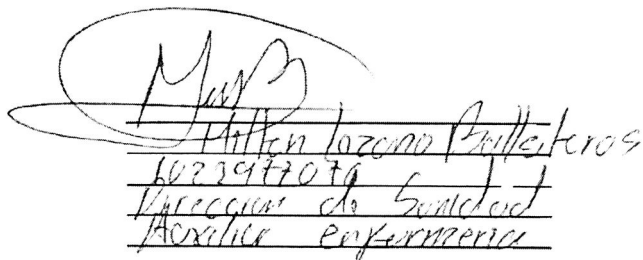 Milton Lozano Ballesteros
1022977079
Direccion de Sanidad
Auxiliar enfermeria